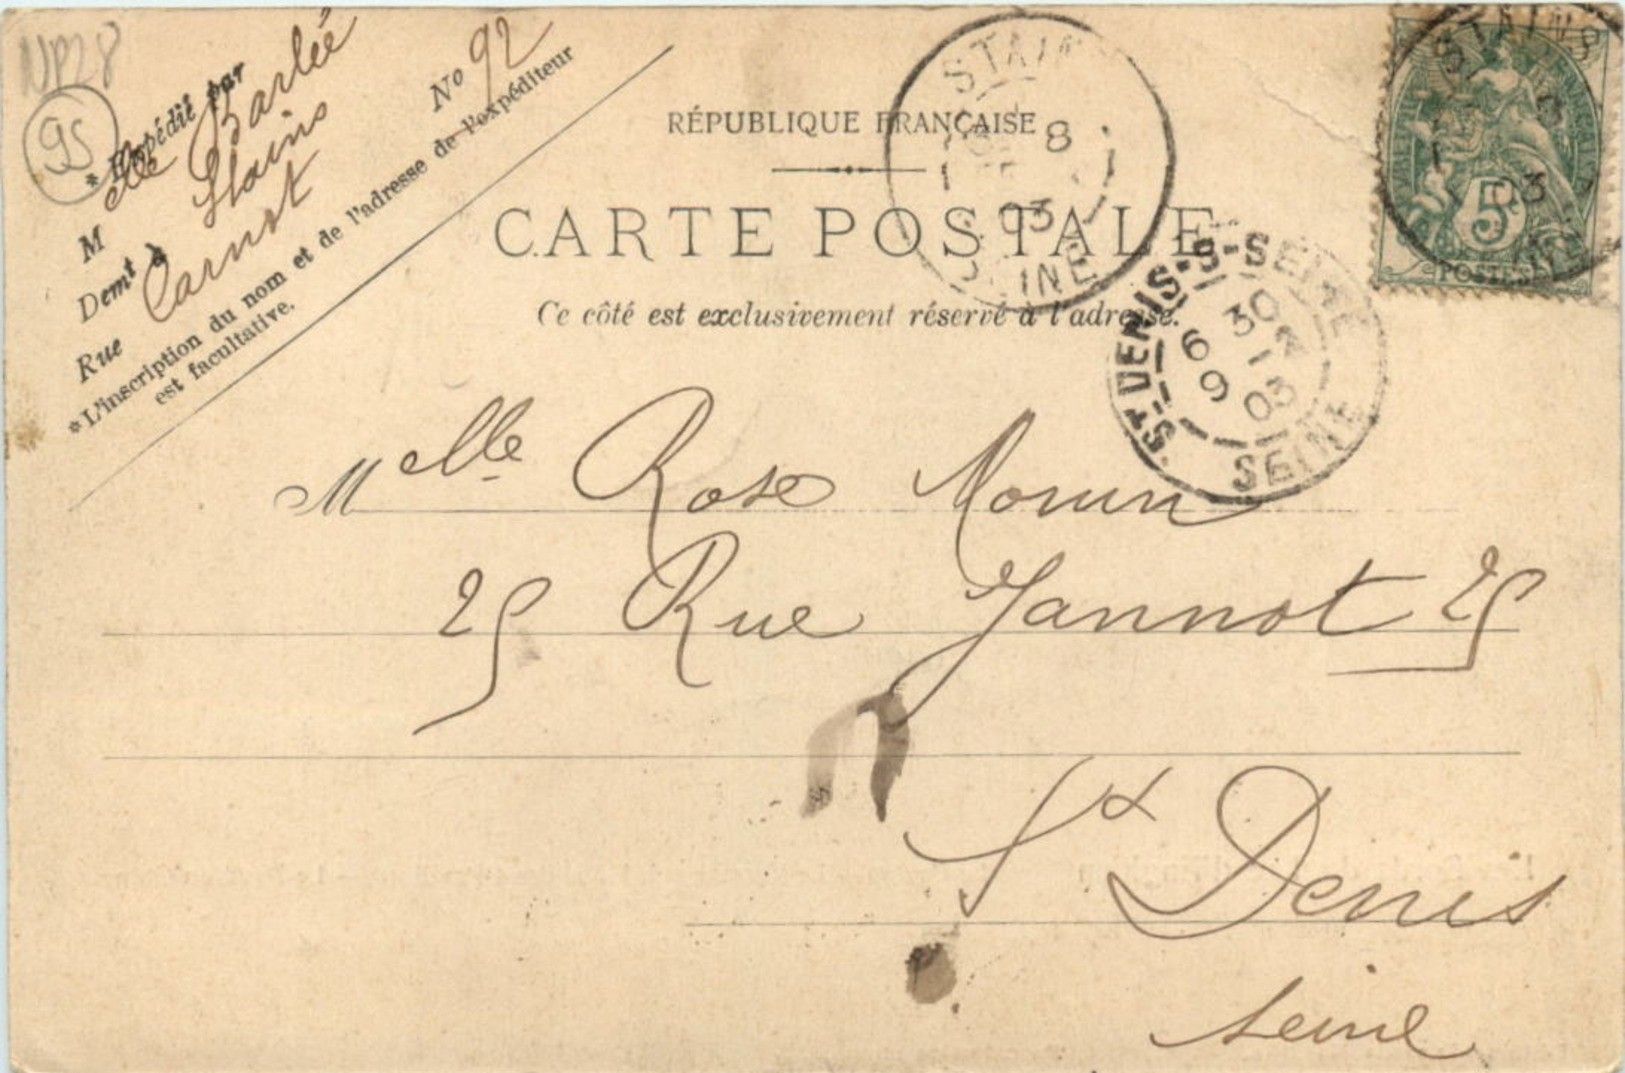 NP28
95
* Expédié par
M elle Barlée
Demt à Stains
Rue Carnot No 92
*L'inscription du nom et de l'adresse de l'expéditeur
est facultative.
RÉPUBLIQUE FRANÇAISE
CARTE POSTALE
Ce côté est exclusivement réservé à l'adresse.
STAINS
8
03
SEINE
STAINS
8
03
5c
POSTES
ST-DENIS-S-SEINE
6 30
9 1 03
SEINE
Melle Rose Morin
25 Rue Jannot 25
St Denis
Seine